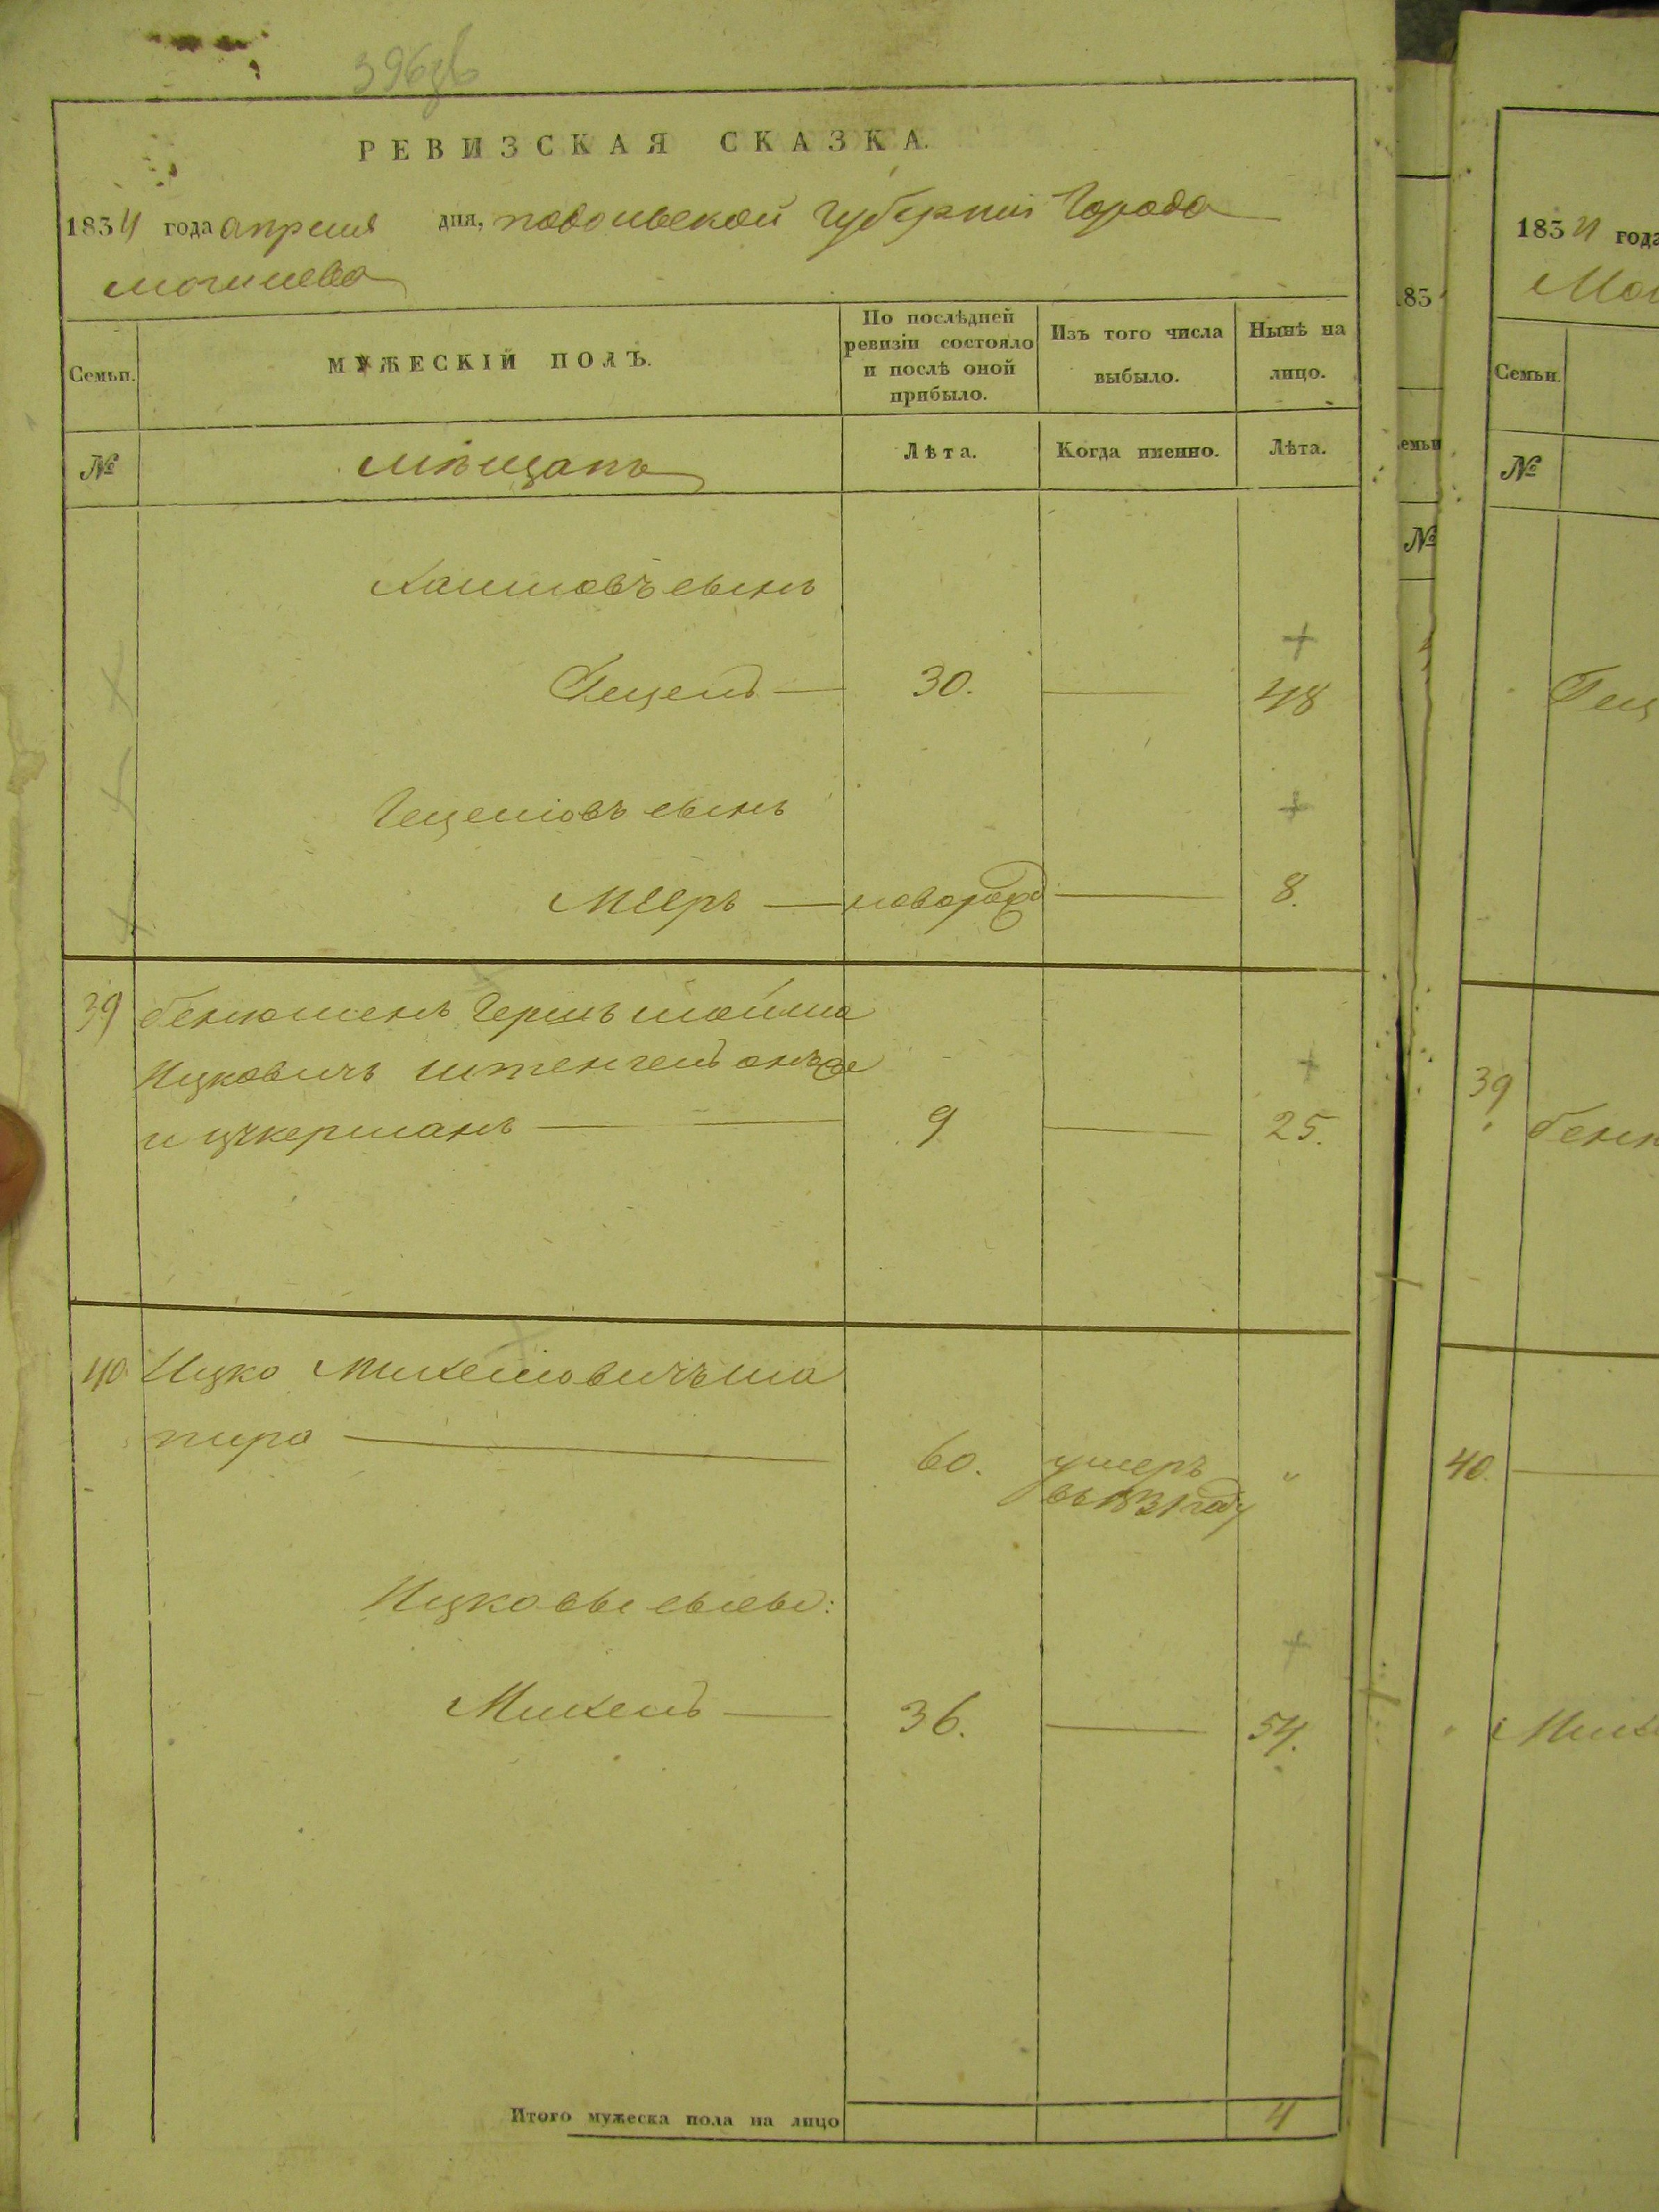 396
РЕВИЗСКАЯ СКАЗКА.
1834 года апреля дня, подольской губернии города
могилева
Семьи.
МУЖЕСКІЙ ПОЛЪ.
По послѣдней ревизіи состояло и послѣ оной прибыло.
Изъ того числа выбыло.
Нынѣ на лицо.
№
мѣщанъ
Лѣта.
Когда именно.
Лѣта.
Хаимовъ сынъ
Гецель 30. 48
Гецеліовъ сынъ
Мееръ новорожд 8.
39 беніоменъ Герш
Ицковичъ штенгель онъже
и цукерманъ 9 25.
40 Ицко Михеліовичъ ша
пиро 60. умеръ "
въ 1831 году
Ицковы сыны:
Михель 36. 54.
Итого мужеска пола на лицо 4
183 года
Мо
Семьи.
№
Гец
39
бен
40.
Мих
83
емьи
№